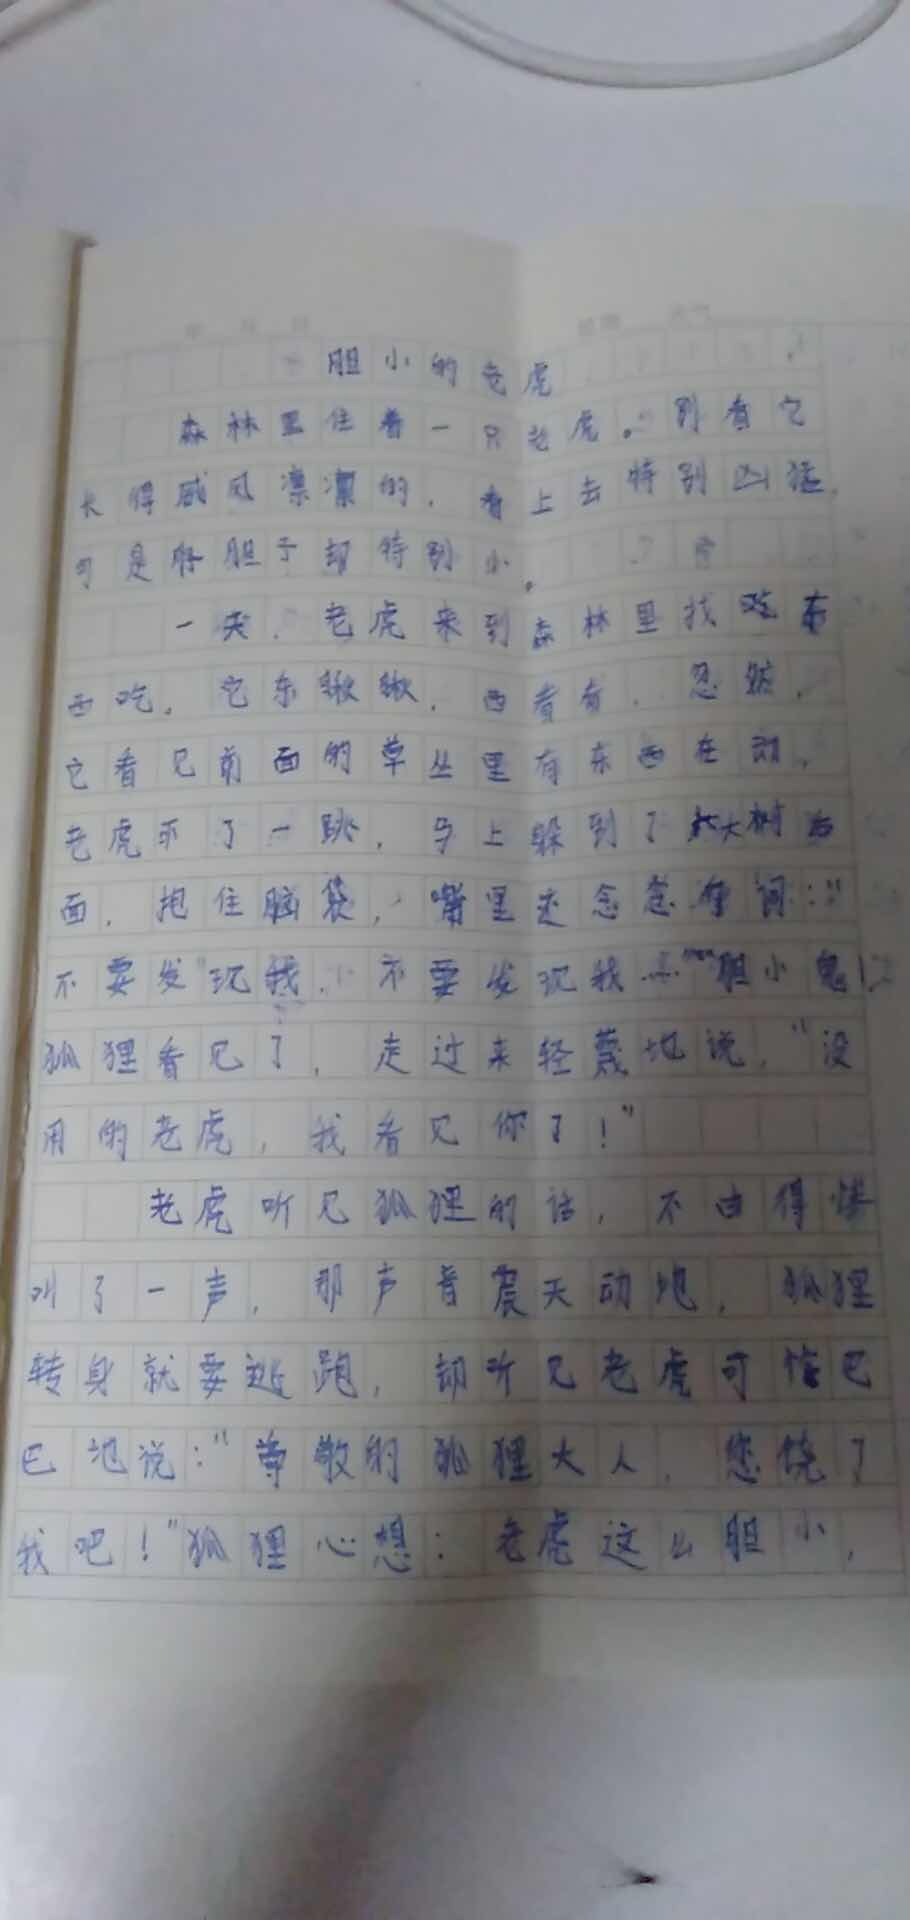 胆小的老虎
森林里住着一只老虎。别看它
长得威风凛凛的，看上去特别凶猛，
可是胆子却特别小。
一天，老虎来到森林里找吃东
西吃。它东瞅瞅，西看看，忽然，
它看见前面的草丛里有东西在动，
老虎了一跳，马上躲到了大树后
面，抱住脑袋，嘴里还念念有词："
不要发现我，不要发现我……""胆小鬼！
狐狸看见了，走过来轻蔑地说，"没
用的老虎，我看见你了！"
老虎听见狐狸的话，不由得惨
叫了一声，那声音震天动地，狐狸
转身就要逃跑，却听见老虎可怜巴
巴地说："尊敬的狐狸大人，您饶了
我吧！"狐狸心想：老虎这么胆小，